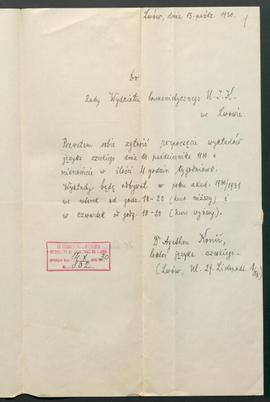 Lwów, dnia 13. paźdz. 1930.
1
Do
Rady Wydziału humanistycznego U. J. K.
we Lwowie.
Pozwalam sobie zgłosić rozpoczęcie wykładów
języka czeskiego dnia października 1930
w ilości 4 godzin tygodniowo.
Wykłady będę odbywał w roku akad. 1930/1931
we wtorek od godz. 18-20 (kurs niższy) i
w czwartek od godz. 18-20 (kurs wyższy).
Dr Agathon Koníř,
lektor języka czeskiego.
(Lwów, Ul. 29. Listopada
14. X 30
302